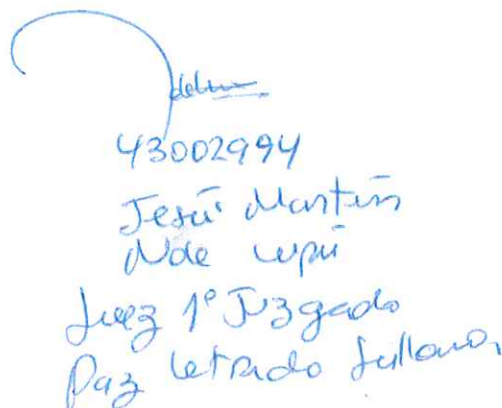 43002994
Jesús Martín
Juez 1º Juzgado
Paz Letrado Sullana